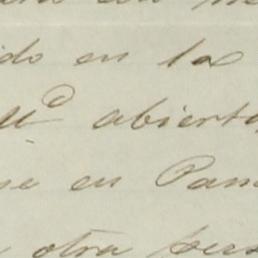 ido en la
Ud abierta
se en Pan
otra pers